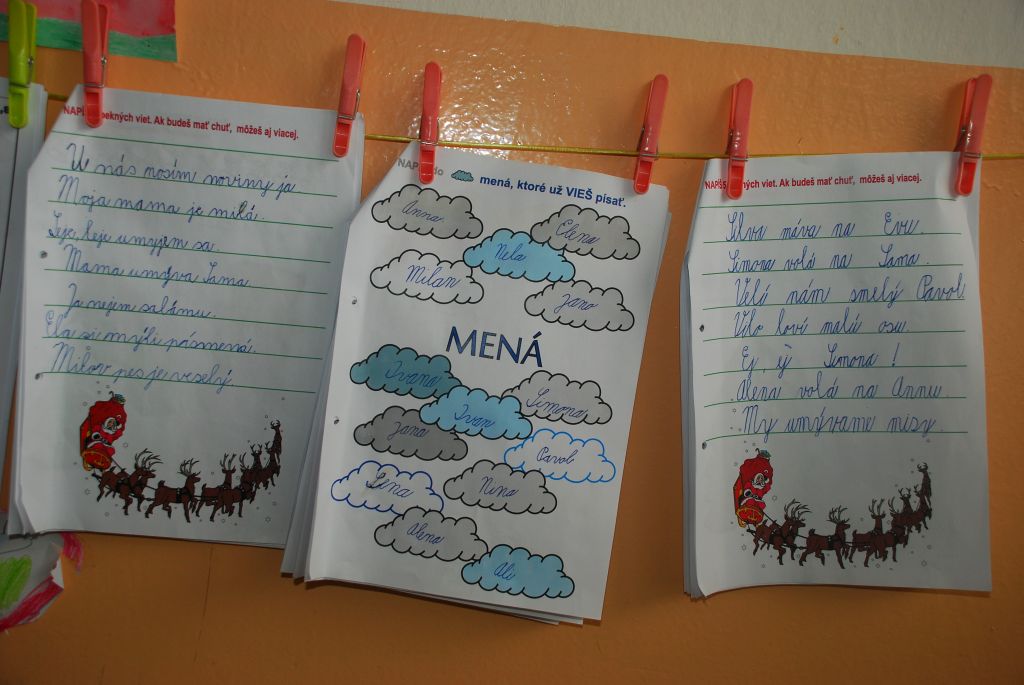 NAPÍŠ pekných viet. Ak budeš mať chuť, môžeš aj viacej.
U nás nosím noviny ja.
Moja mama je milá.
Leje, leje umyjem sa.
Mama umýva Sama.
Ja nejem salámu.
Ela si mýli písmená.
Milov pes je veselý
NAPÍŠ do mená, ktoré už VIEŠ písať.
Anna
Elena
Nela
Milan
Jano
MENÁ
Ivana
Simona
Ivan
Jana
Pavol
Lena
Nina
Alena
Ali
NAPÍŠ 5 pekných viet. Ak budeš mať chuť, môžeš aj viacej.
Silva máva na Evu.
Simona volá na Sama.
Velí nám smelý Pavol.
Vilo loví malú osu.
Ej, ej Simona!
Alena volá na Annu.
My umývame misy.